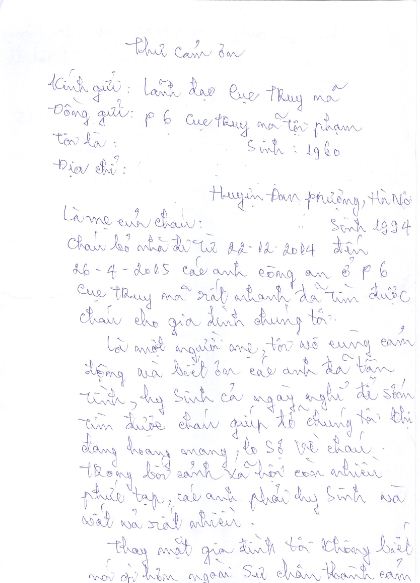 Thư cảm ơn
Kính gửi: Lãnh đạo Cục truy nã
Đồng gửi: P6 Cục truy nã tội phạm
Tôi là: Sinh: 1960
Địa chỉ:
Huyện Đan Phượng, Hà Nội
Là mẹ của cháu: Sinh 1994
Cháu bỏ nhà đi từ 22-12-2014 đến
26-4-2015 các anh công an ở P6
Cục truy nã rất nhanh đã tìm được
cháu cho gia đình chúng tôi.
Là một người mẹ, tôi vô cùng cảm
động và biết ơn các anh đã tận
tình, hy sinh cả ngày nghỉ để sớm
tìm được cháu giúp đỡ chúng tôi khi
đang hoang mang, lo sợ về cháu.
Trong bối cảnh xã hội còn nhiều
phức tạp, các anh phải hy sinh và
vất vả rất nhiều.
Thay mặt gia đình tôi không biết
nói gì hơn ngoài sự chân thành cảm